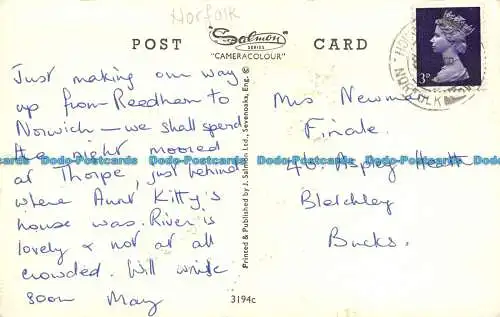 Norfolk
POST
Salmon
SERIES
"CAMERACOLOUR"
CARD
Just making our way
up from Reedham to
Norwich – we shall spend
the night moored
at Thorpe, just behind
where Aunt Kitty's
house was. River is
lovely & not at all
crowded. Will write
soon May
Printed & Published by J. Salmon Ltd., Sevenoaks, Eng. ©
3194c
3D
NORFOLK
Mrs Newman
Finale.
40. Aspley Heath
Bletchley
Bucks.
Dodo-Postcards Dodo-Postcards Dodo-Postcards Dodo-Postcards Dodo-Postcards